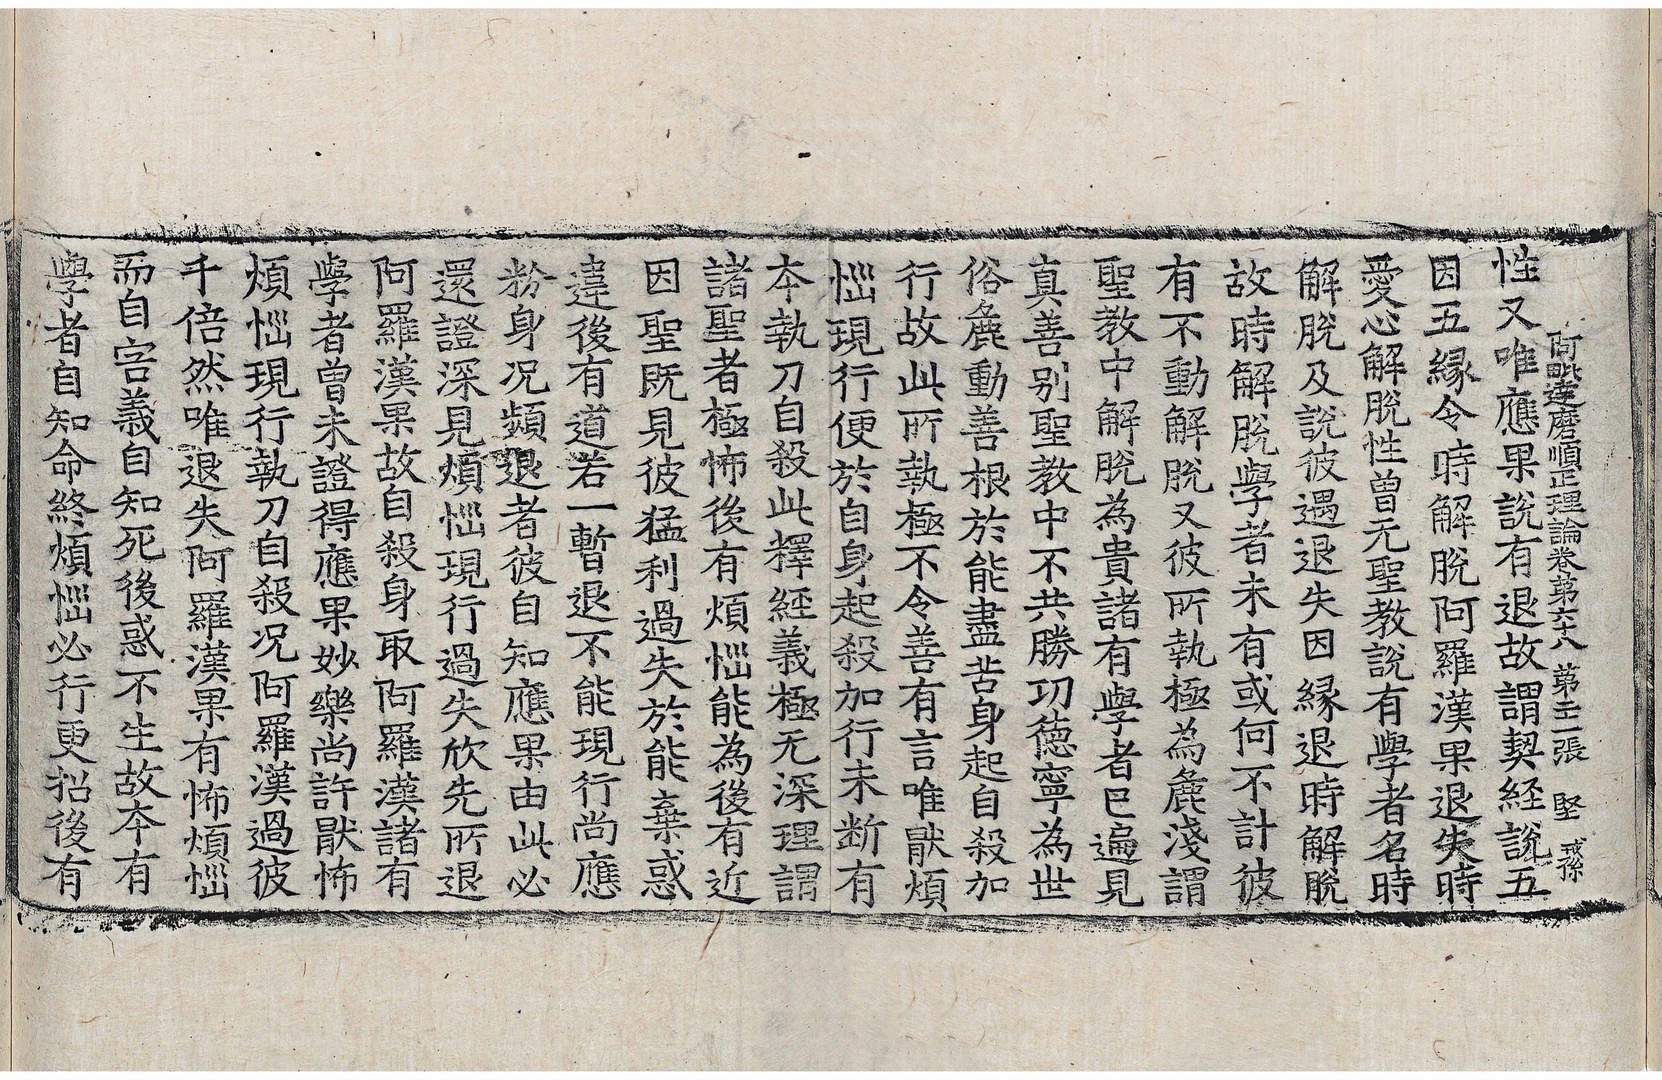 阿毗達磨順正理論卷第六十八 第三張 堅 戒孫
性又唯應果說有退故謂契經說五
因五緣令時解脫阿羅漢果退失時
愛心解脫性曾无聖教說有學者名時
解脫及說彼遇退失因緣退時解脫
故時解脫學者未有或何不計彼
有不動解脫又彼所執極為麁淺謂
聖教中解脫為貴諸有學者已遍見
真善別聖教中不共勝功德寧為世
俗麁動善根於能盡苦身起自殺加
行故此所執極不令善有言唯猒煩
惱現行便於自身起殺加行未断有
本執刀自殺此釋經義極无深理謂
諸聖者極怖後有煩惱能為後有近
因聖既見彼猛利過失於能棄惑
違後有道若一暫退不能現行尚應
粉身況頻退者彼自知應果由此必
還證深見煩惱現行過失欣先所退
阿羅漢果故自殺身取阿羅漢諸有
學者曾未證得應果妙樂尚許猒怖
煩惱現行執刀自殺況阿羅漢過彼
千倍然唯退失阿羅漢果有怖煩惱
而自害義自知死後惑不生故本有
學者自知命終煩惱必行更招後有